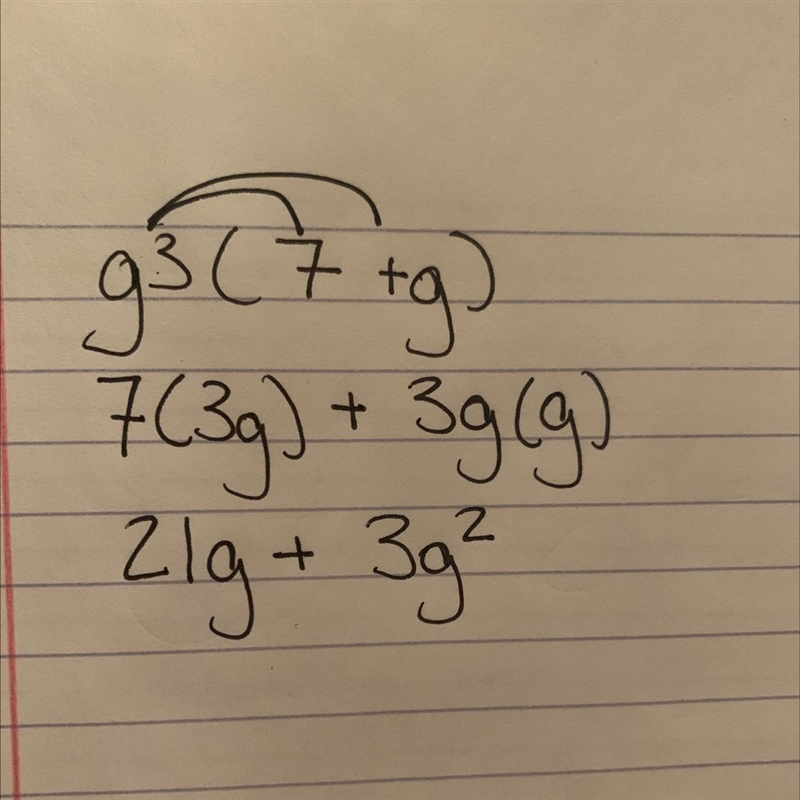 g³(7+g)
7(3g) + 3g(g)
21g + 3g²